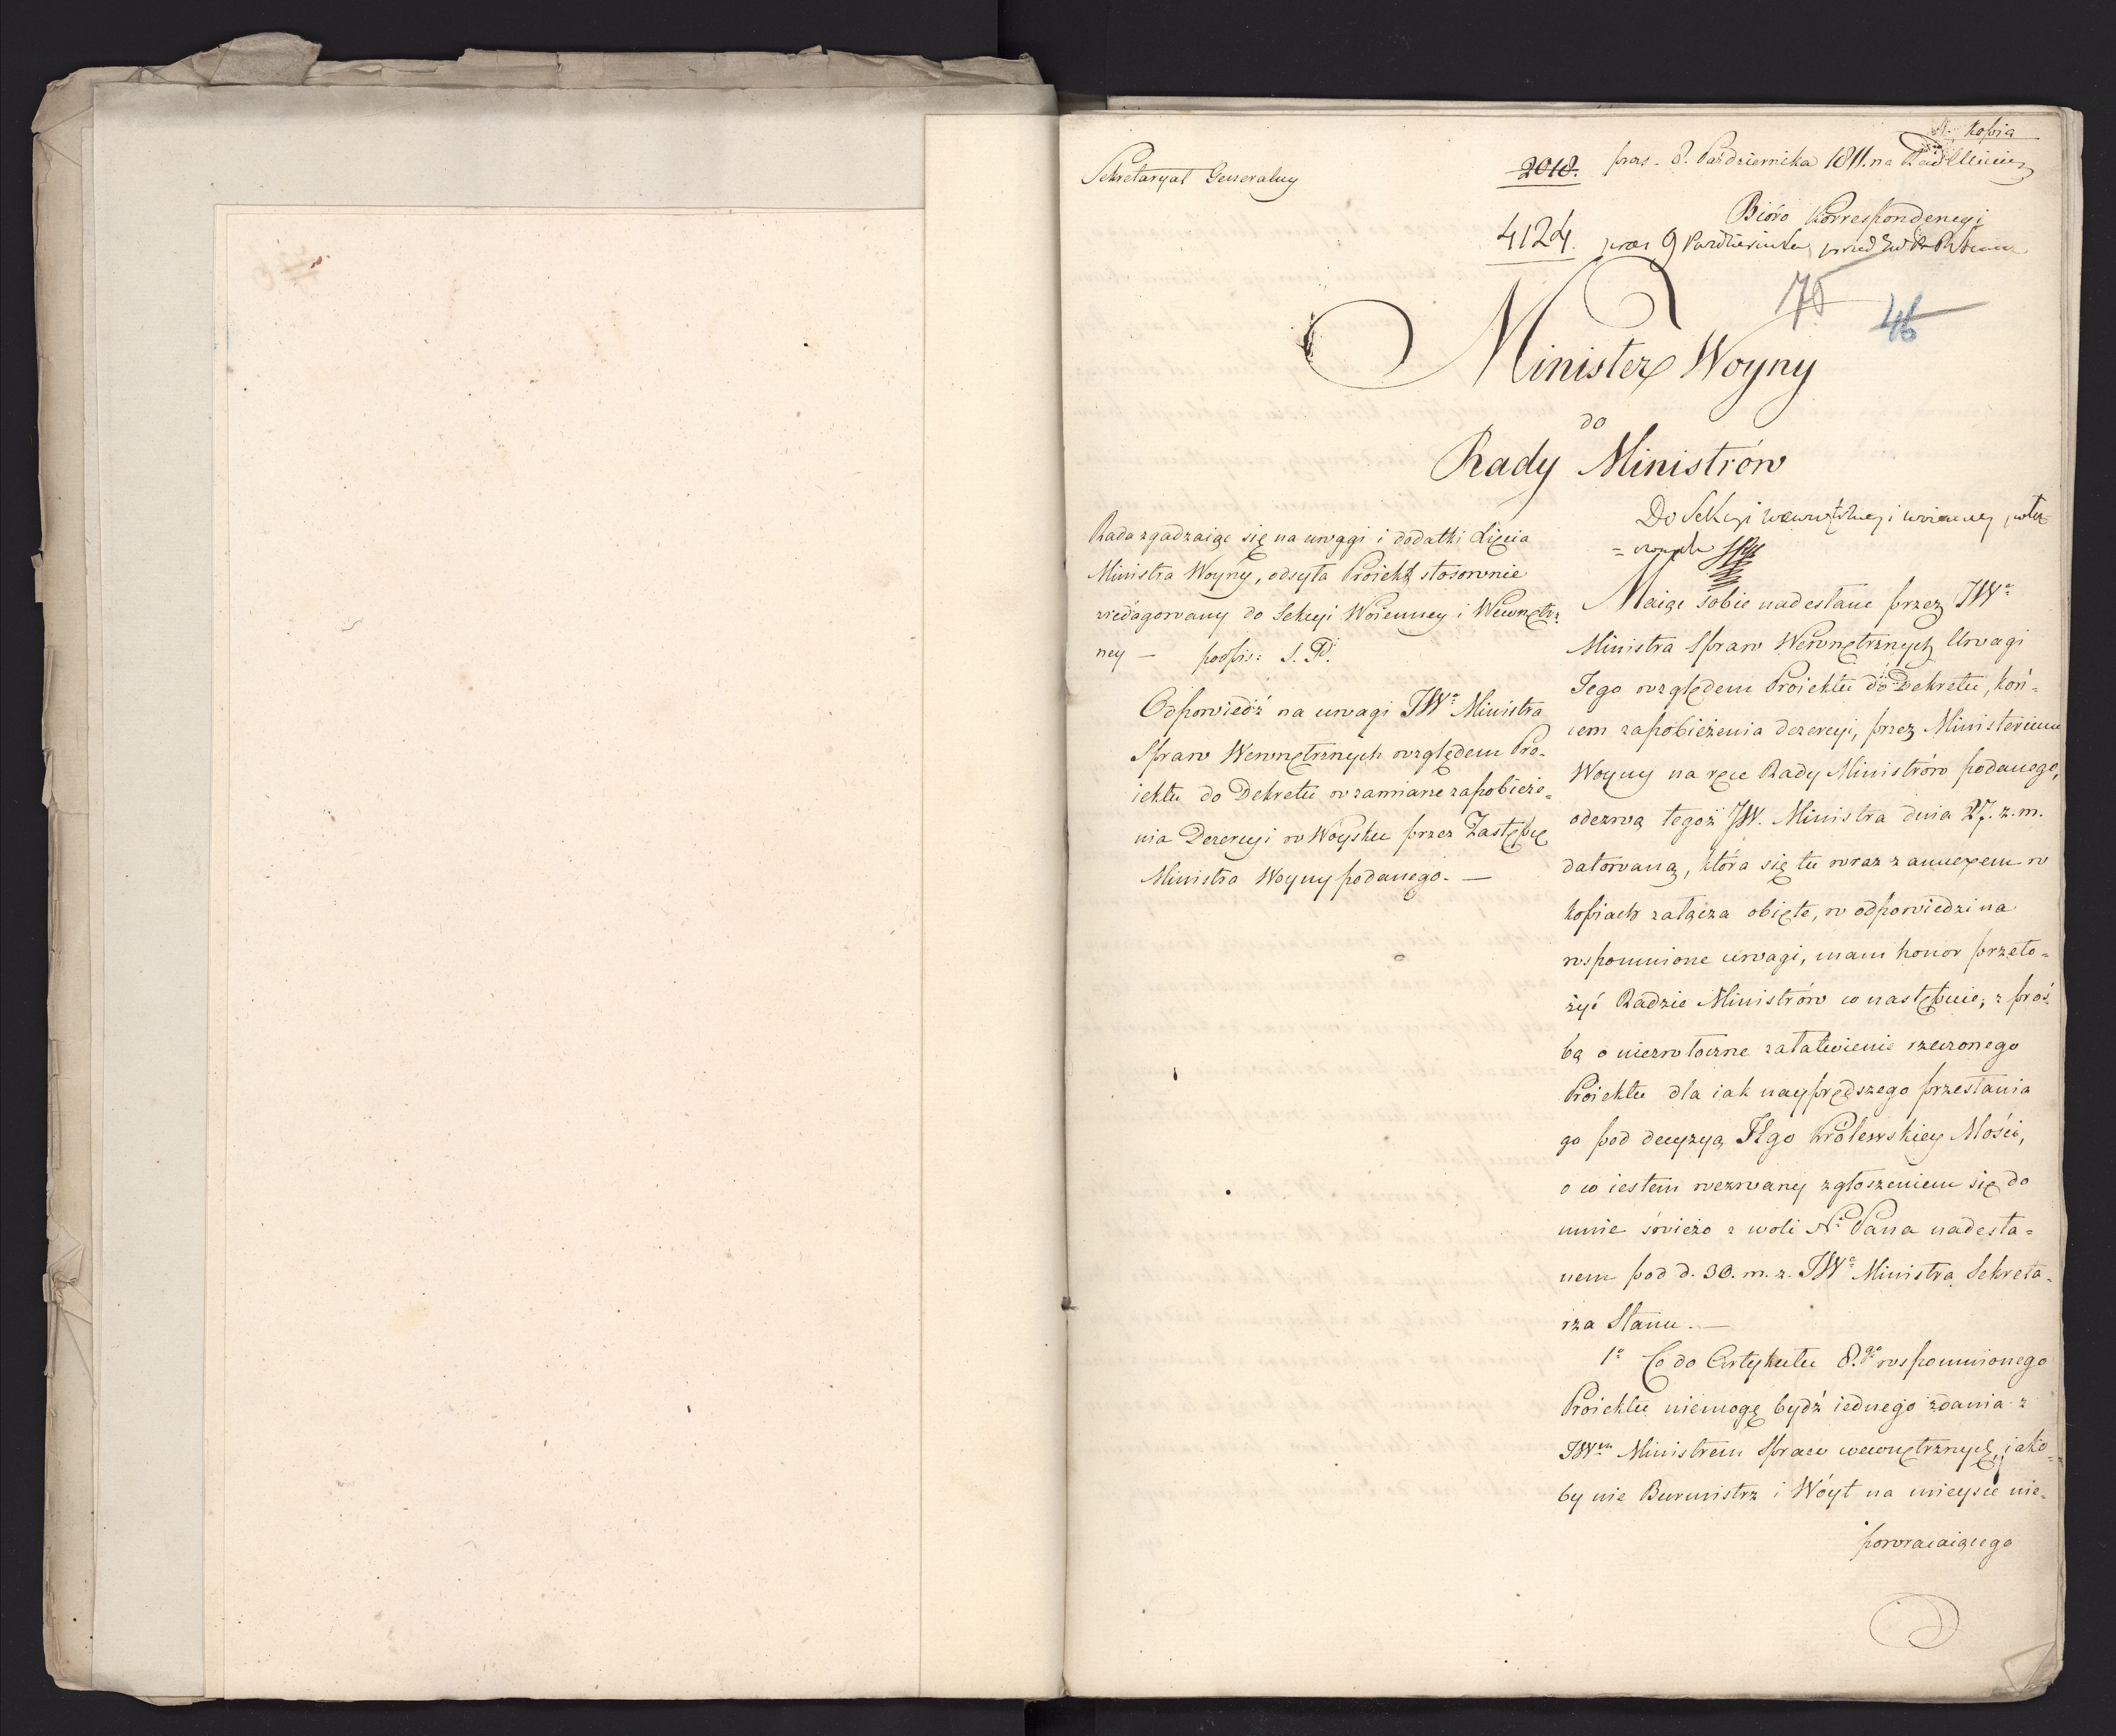 Kopia
Sekretaryat Generalny
2018. prs. 8. Października 1811. na
Bióro Korrespondencyi
4124. prez 9 Października
75
46
Minister Woyny
do
Rady Ministrów
Do Sekcyi i
Rada zgadzaiąc się na uwagi i dodatki Xięcia
Ministra Woyny, odsyła Proiekt stosownie
zredagowany do Sekcyi Woienney i Wewnętrz
ney — podpis: S. P.
Odpowiedź na uwagi JWo Ministra
Spraw Wewnętrznych względem Pro-
iektu do Dekretu w zamiarze zapobieże-
nia Dezercyi w Woysku przez Zastępcę
Ministra Woyny podanego. —
Maiąc sobie nadesłane przez JWo
Ministra Spraw Wewnętrznych Uwagi
Jego względem Proiektu do Dekretu, koń-
cem zapobieżenia dezercyi, przez Ministerium
Woyny na ręce Rady Ministrów podanego,
odezwą tegoż JW. Ministra dnia 27. z. m.
datowaną, która się tu wraz z annexem w
kopiach załącza obięte, w odpowiedzi na
wspomnione uwagi, mam honor przeło-
żyć Radzie Ministrów co następuie; z proś-
bą o niezwłoczne załatwienie rzeczonego
Proiektu dla iak nayprędszego przesłania
go pod decyzyą JKgo Królewskiey Mości,
o co iestem wezwany zgłoszeniem się do
mnie świeżo z woli N. Pana nadesła-
nem pod d. 30. m. z. JWo Ministra Sekreta-
rza Stanu. —
1o Co do Artykułu 8.go wspomnionego
Proiektu niemogę bydź iednego zdania z
JWm Ministrem Spraw wewnętrznych, iako-
by nie Burmistrz i Wóyt na mieysce nie-
powracaiącego